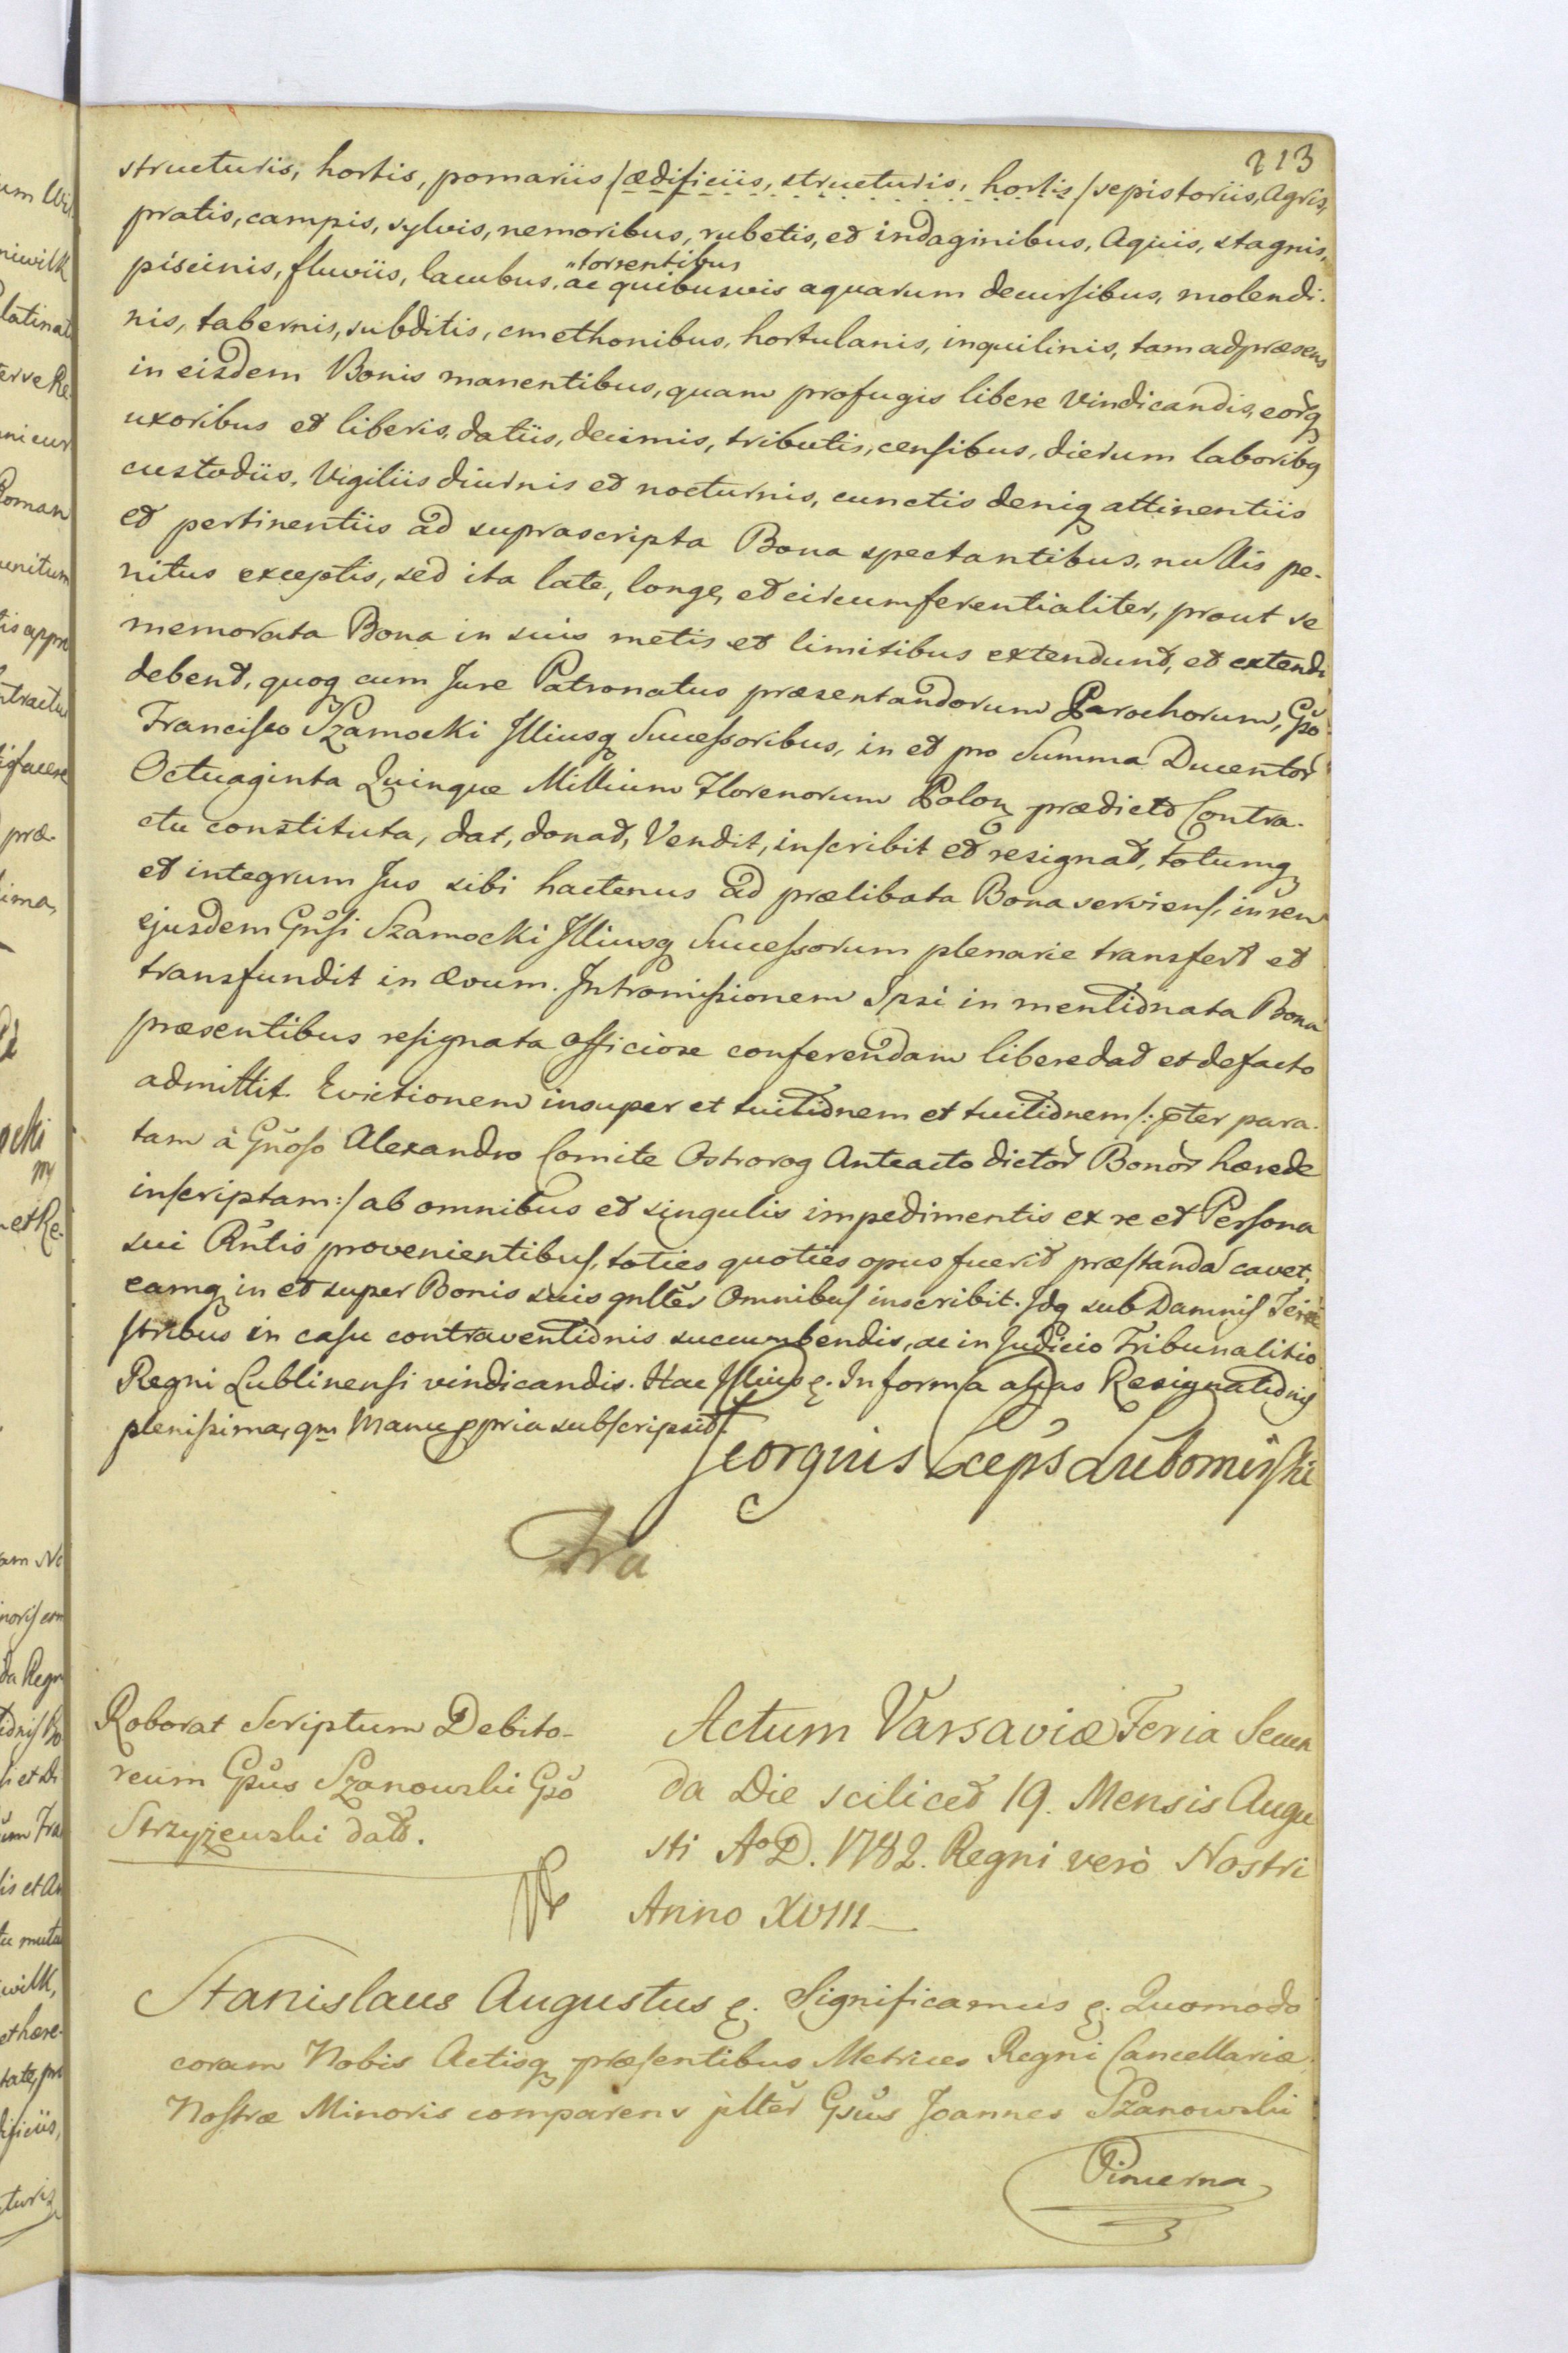 213
structuris, hortis, pomariis /ædificiis, structuris, hortis/ sepistoriis, Agris,
pratis, campis, sylvis, nemoribus, rubetis, et indaginibus, Aquis, stagnis,
torrentibus
piscinis, fluviis, lacubus, ac quibusvis aquarum decursibus, molendi-
nis, tabernis, subditis, cmethonibus, hortulanis, inquilinis, tam ad præsens
in eisdem Bonis manentibus, quam profugis libere vindicandis, eorq
uxoribus et liberis, datiis, decimis, tributis, censibus, dierum laboribq
custodiis, Vigiliis diurnis et nocturnis, cunctis deniq attinentiis
et pertinentiis ad suprascripta Bona spectantibus, nullis pe-
nitus exceptis, sed ita late, longe, et circumferentialiter, prout se
memorata Bona in suis metis et limitibus extendunt, et extendi
debent, quoq cum Jure Patronatus præsentandorum Parochorum, Gso
Francisco Szamocki Illiusq Successoribus, in et pro Summa Ducentor
Octuaginta Quinque Millium Florenorum Polon prædicto Contra-
ctu constituta, dat, donat, Vendit, inscribit et resignat, totumq
et integrum Jus sibi hactenus ad prælibata Bona serviens, in rem
ejusdem Gnsi Szamocki Illiusq Successorum plenarie transfert et
transfundit in ævum. Intromissionem Ipsi in mentionata Bona
præsentibus resignata officiose conferendam libere dat et de facto
admittit. Evictionem insuper et tuitionem et tuitionem /:pter para-
tam à Gnoso Alexandro Comite Ostrorog Anteacto dictor Bonor hærede
inscriptam:/ ab omnibus et singulis impedimentis ex re et Persona
sui Rntis provenientibus, toties quoties opus fuerit præstanda cavet,
eamq in et super Bonis suis gnlter Omnibus inscribit. Idq sub Damnis Terre
stribus in casu contraventionis succumbendis, ac in Judicio Tribunalitio
Regni Lublinensi vindicandis. Hac Illius &. In forma alias Resignationis
plenissima, qm Manu ppria subscripsit.
Georgius Xceps Lubomirski
Roborat Scriptum Debito-
reum Gsus Szanowski Gso
Strzyżewski dato.
Actum Varsaviæ Feria Secun
da Die scilicet 19. Mensis Augu
sti Ao D. 1782. Regni verò Nostri
Anno XVIII
Stanislaus Augustus &. Significamus &. Quomodo
coram Nobis Actisq præsentibus Metrices Regni Cancellariæ
Nostræ Minoris comparens plter Gsus Joannes Szanowski
Pincerna